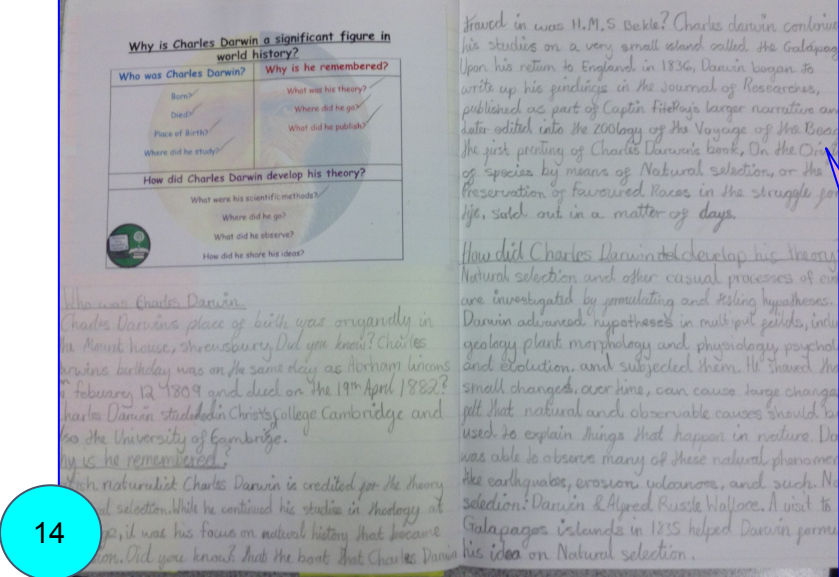 Why is Charles Darwin a significant figure in
world history?
Who was Charles Darwin?
Born?
Died?
Place of Birth?
Where did he study?
Why is he remembered?
What was his theory?
Where did he go?
What did he publish?
How did Charles Darwin develop his theory?
What were his scientific methods?
Where did he go?
What did he observe?
How did he share his ideas?
Who was Charles Darwin
Charles Darwins place of birth was origanally in
Mount house, shrewsbury. Did you know? Charles
birthday was on the same day as Abrham
febuary 12 1809 and died on the 19th April 1882?
Charles Darwin studied in Christs College Cambridge and
the University of
is he remembered?
naturalist Charles Darwin is credited for the theory
selection. While he continued his studies in theology at
it was his focus on natural history that became
Did you know? that the boat that Charles Darwin
traved in was H.M.S Bekle? Charles darwin
his studies on a very small island called the
Upon his return to England in 1836, Darwin began to
write up his findings in the Journal of Researches,
published as part of Captin FitzRoy's larger narrative
later edited into the zoology of the Voyage of the
the first printing of Charles Darwin's book, On the
of species by means of Natural selection, or the
Preservation of Favoured Races in the struggle for
life, sold out in a matter of days.
How did Charles Darwin develop his theory
Natural selection and other casual processes of
are investigated by formulating and testing hypotheses.
Darwin advanced hypotheses in
geology plant morphology and physiology,
and evolution, and subjected them. He shared
small changes, over time, can cause large
felt that natural and observable causes should
used to explain things that happen in nature.
was able to observe many of these natural
like earthquakes, erosion, volcanoes, and such.
selection: Darwin & Alfred Russle Wallace. A visit to
Galapagos islands in 1835 helped Darwin
his idea on Natural selection.
14